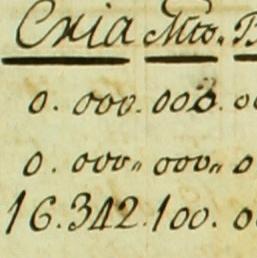 Cria Mto. B
0. 000. 000. 0
0. 000,, 000,, 0
16.342.100. 0